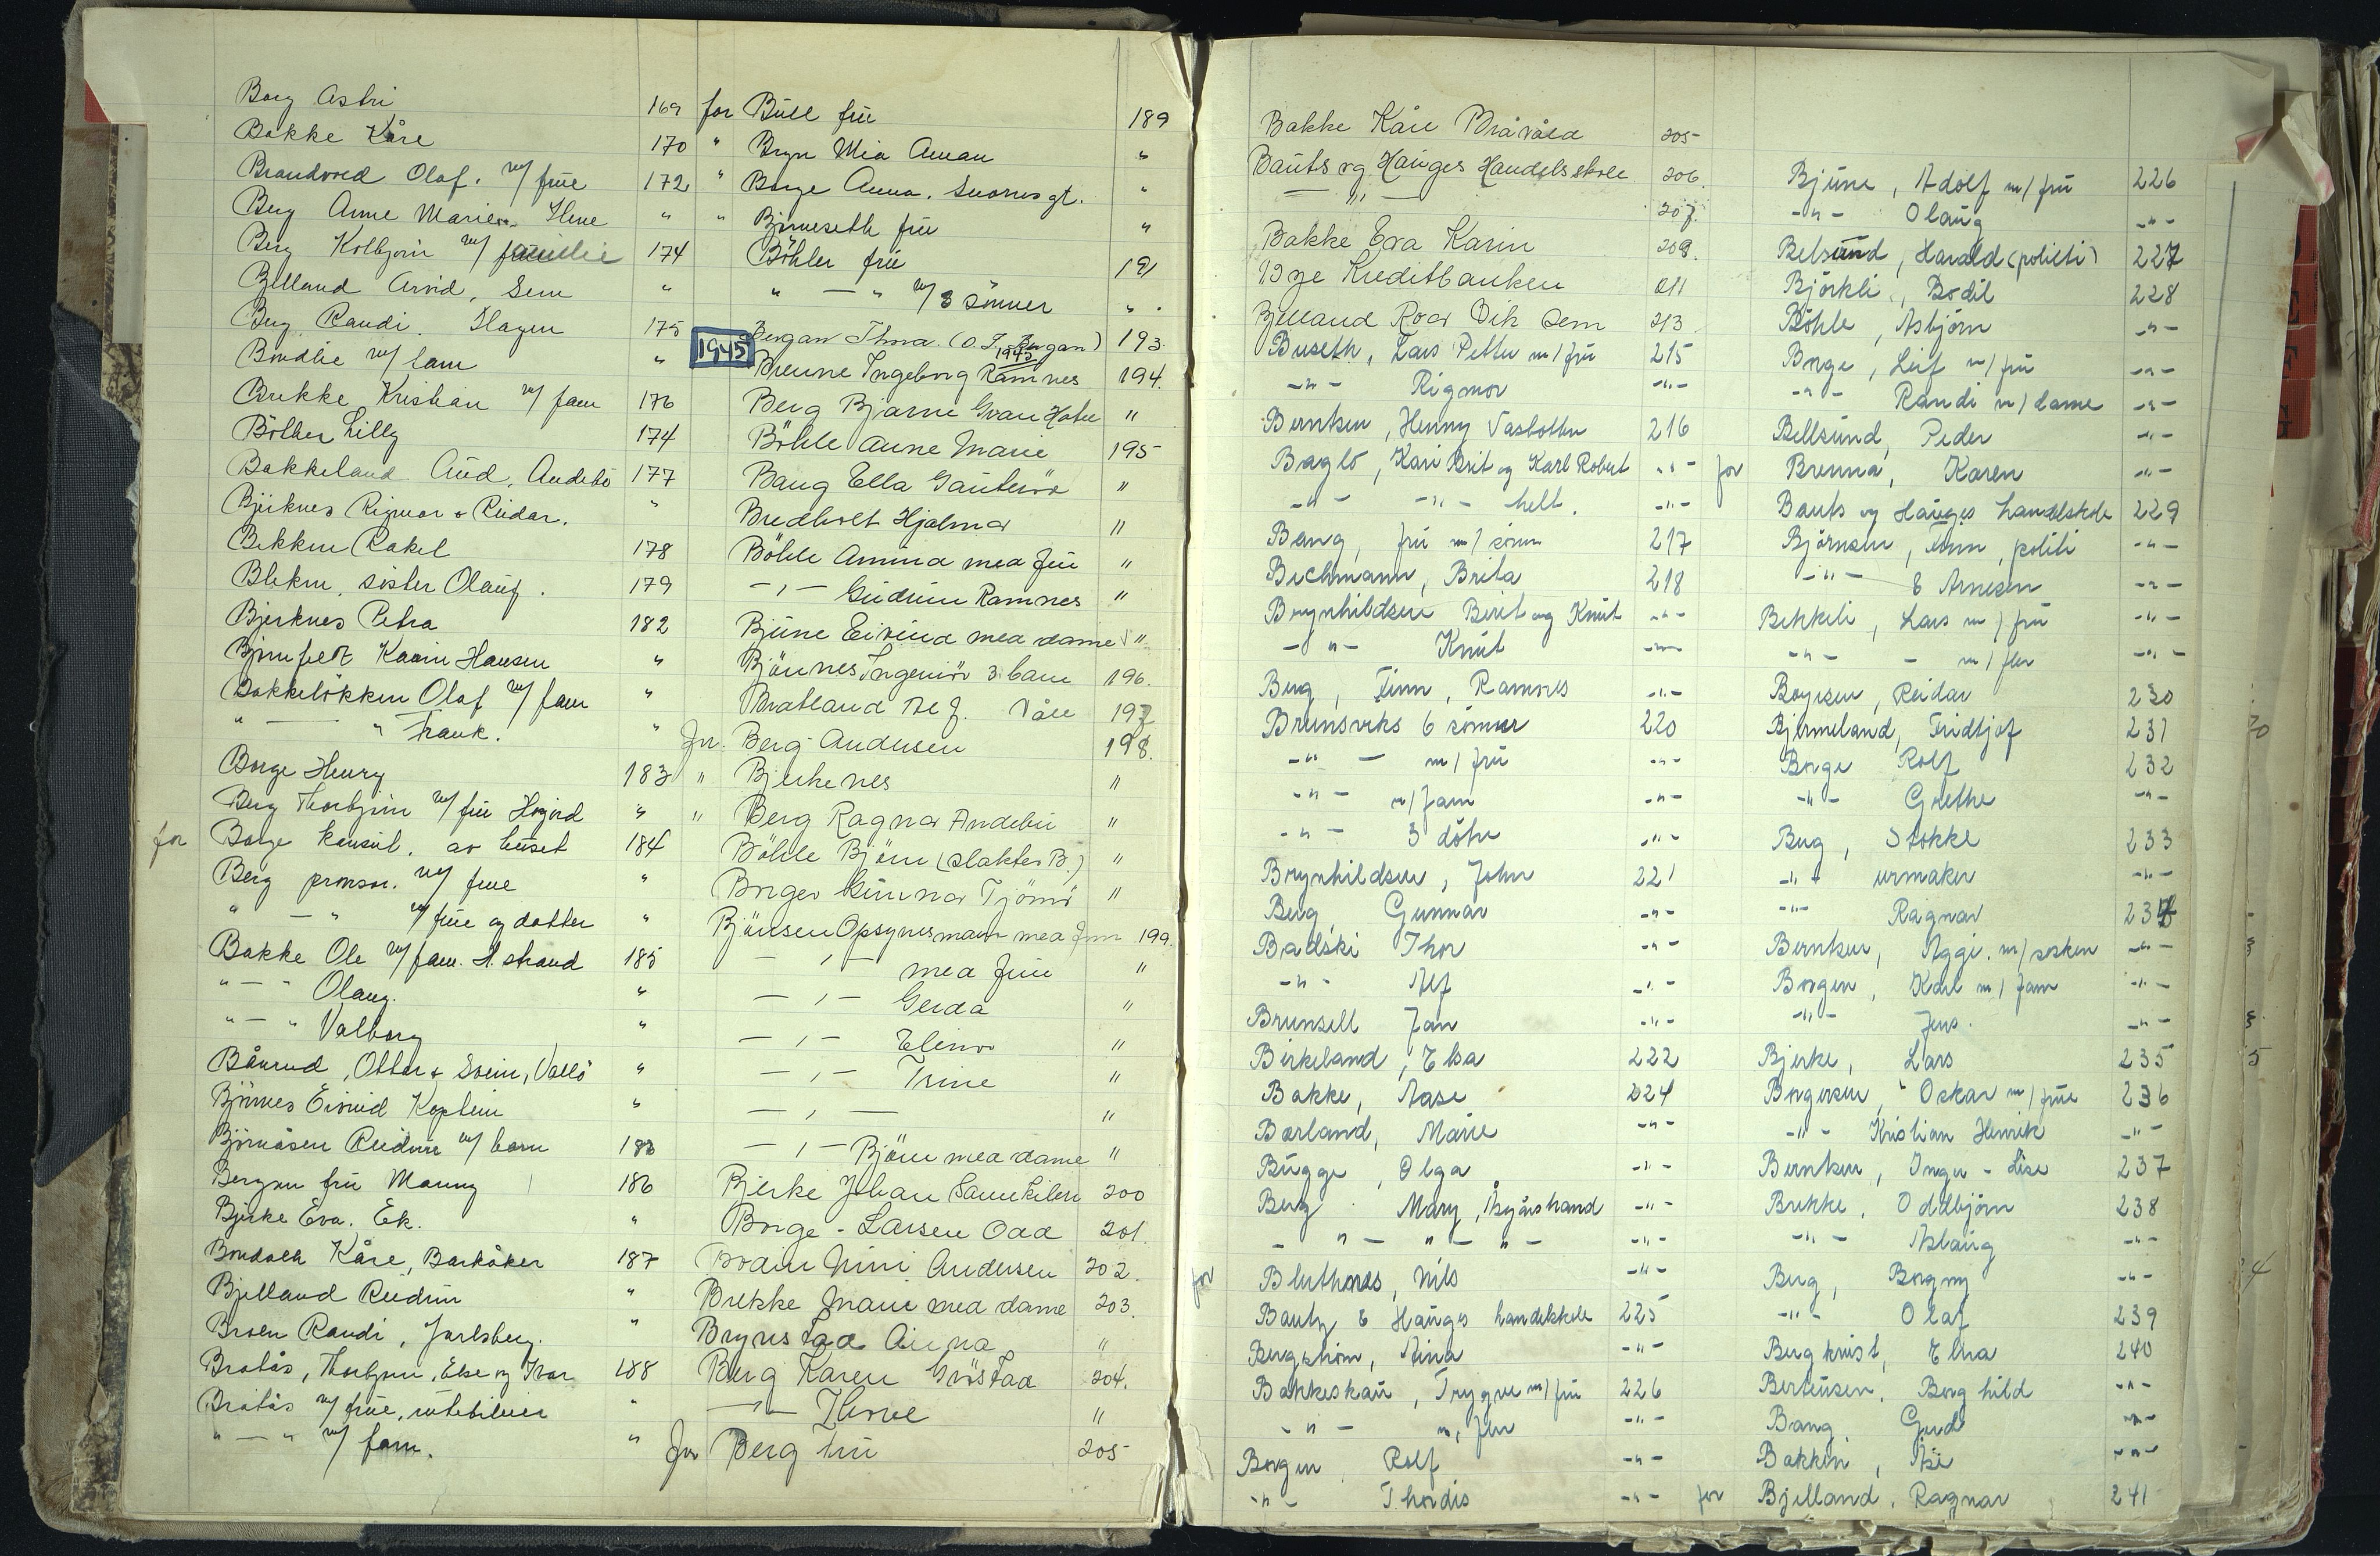 Borg Astri 169
Bakke Kåre 170
Brandvold Olaf. m/ frue 172
Berg Anne Marie "
Berg Kolbjørn m/ familie 174
Bjelland Arvid, Sem "
Berg Randi. Slagen 175
m/ barn "
Brekke Kristian m/ fam 176
Böther Lilly 174
Bakkeland Aud, Andebu 177
Bjerknes Rigmor & Reidar. "
Bekken Rakel 178
Blekm, søster Olaug. 179
Bjerknes Petra 182
Karin Hansen "
Bakkeløkken Olaf m/ fam "
" — " Frank. "
Borge Henry 183
Berg Thorbjørn m/ fru "
for Borge konsul. av huset 184
Berg m/ frue "
" — " m/ frue og datter "
Bakke Ole m/ fam. H. strand 185
" — " Olaug. "
" — " Valborg "
Bånrud, Ottar & Svein, Vallö "
Björnnes Eivind "
Björnåsen Reidun m/ barn 183
Bergan fru Manny 186
Bjerke Eva. Ek. "
Kåre, Barkåker 187
Bjelland Reidun "
Broen Randi, Jarlsberg. "
Bratås, Thorbjørn, Else og Ivar 188
Bratås m/ frue, rutebileier "
" — " m/ fam. "
for Bull fru 189
" Bryn Mia Aman "
" Borge Anna. Svonesgt. "
" Bjørneseth fru "
Böhler fru 191
" — " m/ 3 sønner "
1945 Bergan Thora. (O. T. Bergan) 193.
1945
Brenne Ingeborg Ramnes 194.
Berg Bjarne Grand Hotel "
Böhle Anne Marie 195
Baug Ella "
Bredholt Hjalmar "
Böhle Amund med fru "
— " — Gudrun Ramnes "
Bjune Eivind med dame "
Björnnes Ingeniör 3 barn 196.
Bratland Alf. Våle 197
for. Berg-Andersen 198.
" Bjerkenes "
" Berg Ragnar Andebu "
Böhle Björn (slakter B.) "
Borger Gunnar Tjömö "
Opsynsmann med fam 199.
— " — med frue "
— " — Gerda "
— " — Elinor "
— " — Trine "
— " — "
— " — Björn med dame "
Bjerke Johan 200
Borge-Larsen Odd 201.
Bodin Nini Andersen 202.
Brekke med dame 203.
Brynstad Anna "
Berg Karen 204.
— " — "
for Berg fru 205
Bakke Kåre 205
Bauts og Hauges Handelsskole 206.
— " — 207.
Bakke Eva Karin 209.
Bøye Kreditbanken 211
Bjelland Roar Vik Sem 213
Buseth, Lars Petter m/ fru 215
-"- Rigmor -"-
Berntsen, Henny Vasbotten 216
Baglo, Kari Brit og Karl Robert -"-
-"- -"- helt. -"-
Bang, fru m/ sønn 217
Bechmann, Brita 218
Brynhildsen Berit og Knut -"-
-"- Knut -"-
Berg, Finn, Ramnes -"-
Brunsviks 6 sönner 220
-"- m/ fru -"-
-"- m/ fam -"-
-"- 3 dötre -"-
Brynhildsen, John 221
Berg, Gunnar -"-
Badski Thor -"-
-"- Alf -"-
Brunsell Jan -"-
Birkeland, Elsa 222
Bakke, Aase 224
Børland, Marie -"-
Bugge, Olga -"-
Berg Mary, Åsgårstrand -"-
- " - " - " - -"-
for Bluthmas, Nils -"-
Bauty & Hauges handelskole 225
Bergström, Anna -"-
Bakkeskau, Trygve m/ fru 226
-"- m/ fler -"-
Borgen Rolf -"-
-"- Thordis -"-
Bjune, Adolf m/ fru 226
-"- Olaug -"-
Belsund, Harald (politi) 227
Björkli, Bodil 228
Böhle, Asbjörn -"-
Borge, Leif m/ fru -"-
-"- Randi m/ dame -"-
Bellsund, Peder -"-
for Brenna, Karen -"-
Bauts og Hauges handelskole 229
Björnsen, Finn, politi -"-
-"- & Arnesen -"-
Bekkeli, Lars m/ fru -"-
-"- - m/ fler -"-
Boyesen, Reidar 230
Bjermeland, Fridtjof 231
Borge Rolf 232
-"- Grethe -"-
Berg, Stokke 233
-"- urmaker -"-
-"- Ragnar 234
Berntsen, Aggi. m/ søsken -"-
Borgen, Karl m/ fam -"-
-"- Jens. -"-
Bjerke, Lars 235
Borgersen, Oskar m/ frue 236
-"- Kristian Henrik -"-
Berntsen, Inger-Lise 237
Brekke, Oddbjörn 238
-"- Aslaug -"-
Berg, Borgny -"-
-"- Olaf 239
Bergkvist, Elna 240
Bertiusen, Borghild -"-
Bang, Gerd -"-
Bakken, Åse -"-
for Bjelland, Ragnar 241